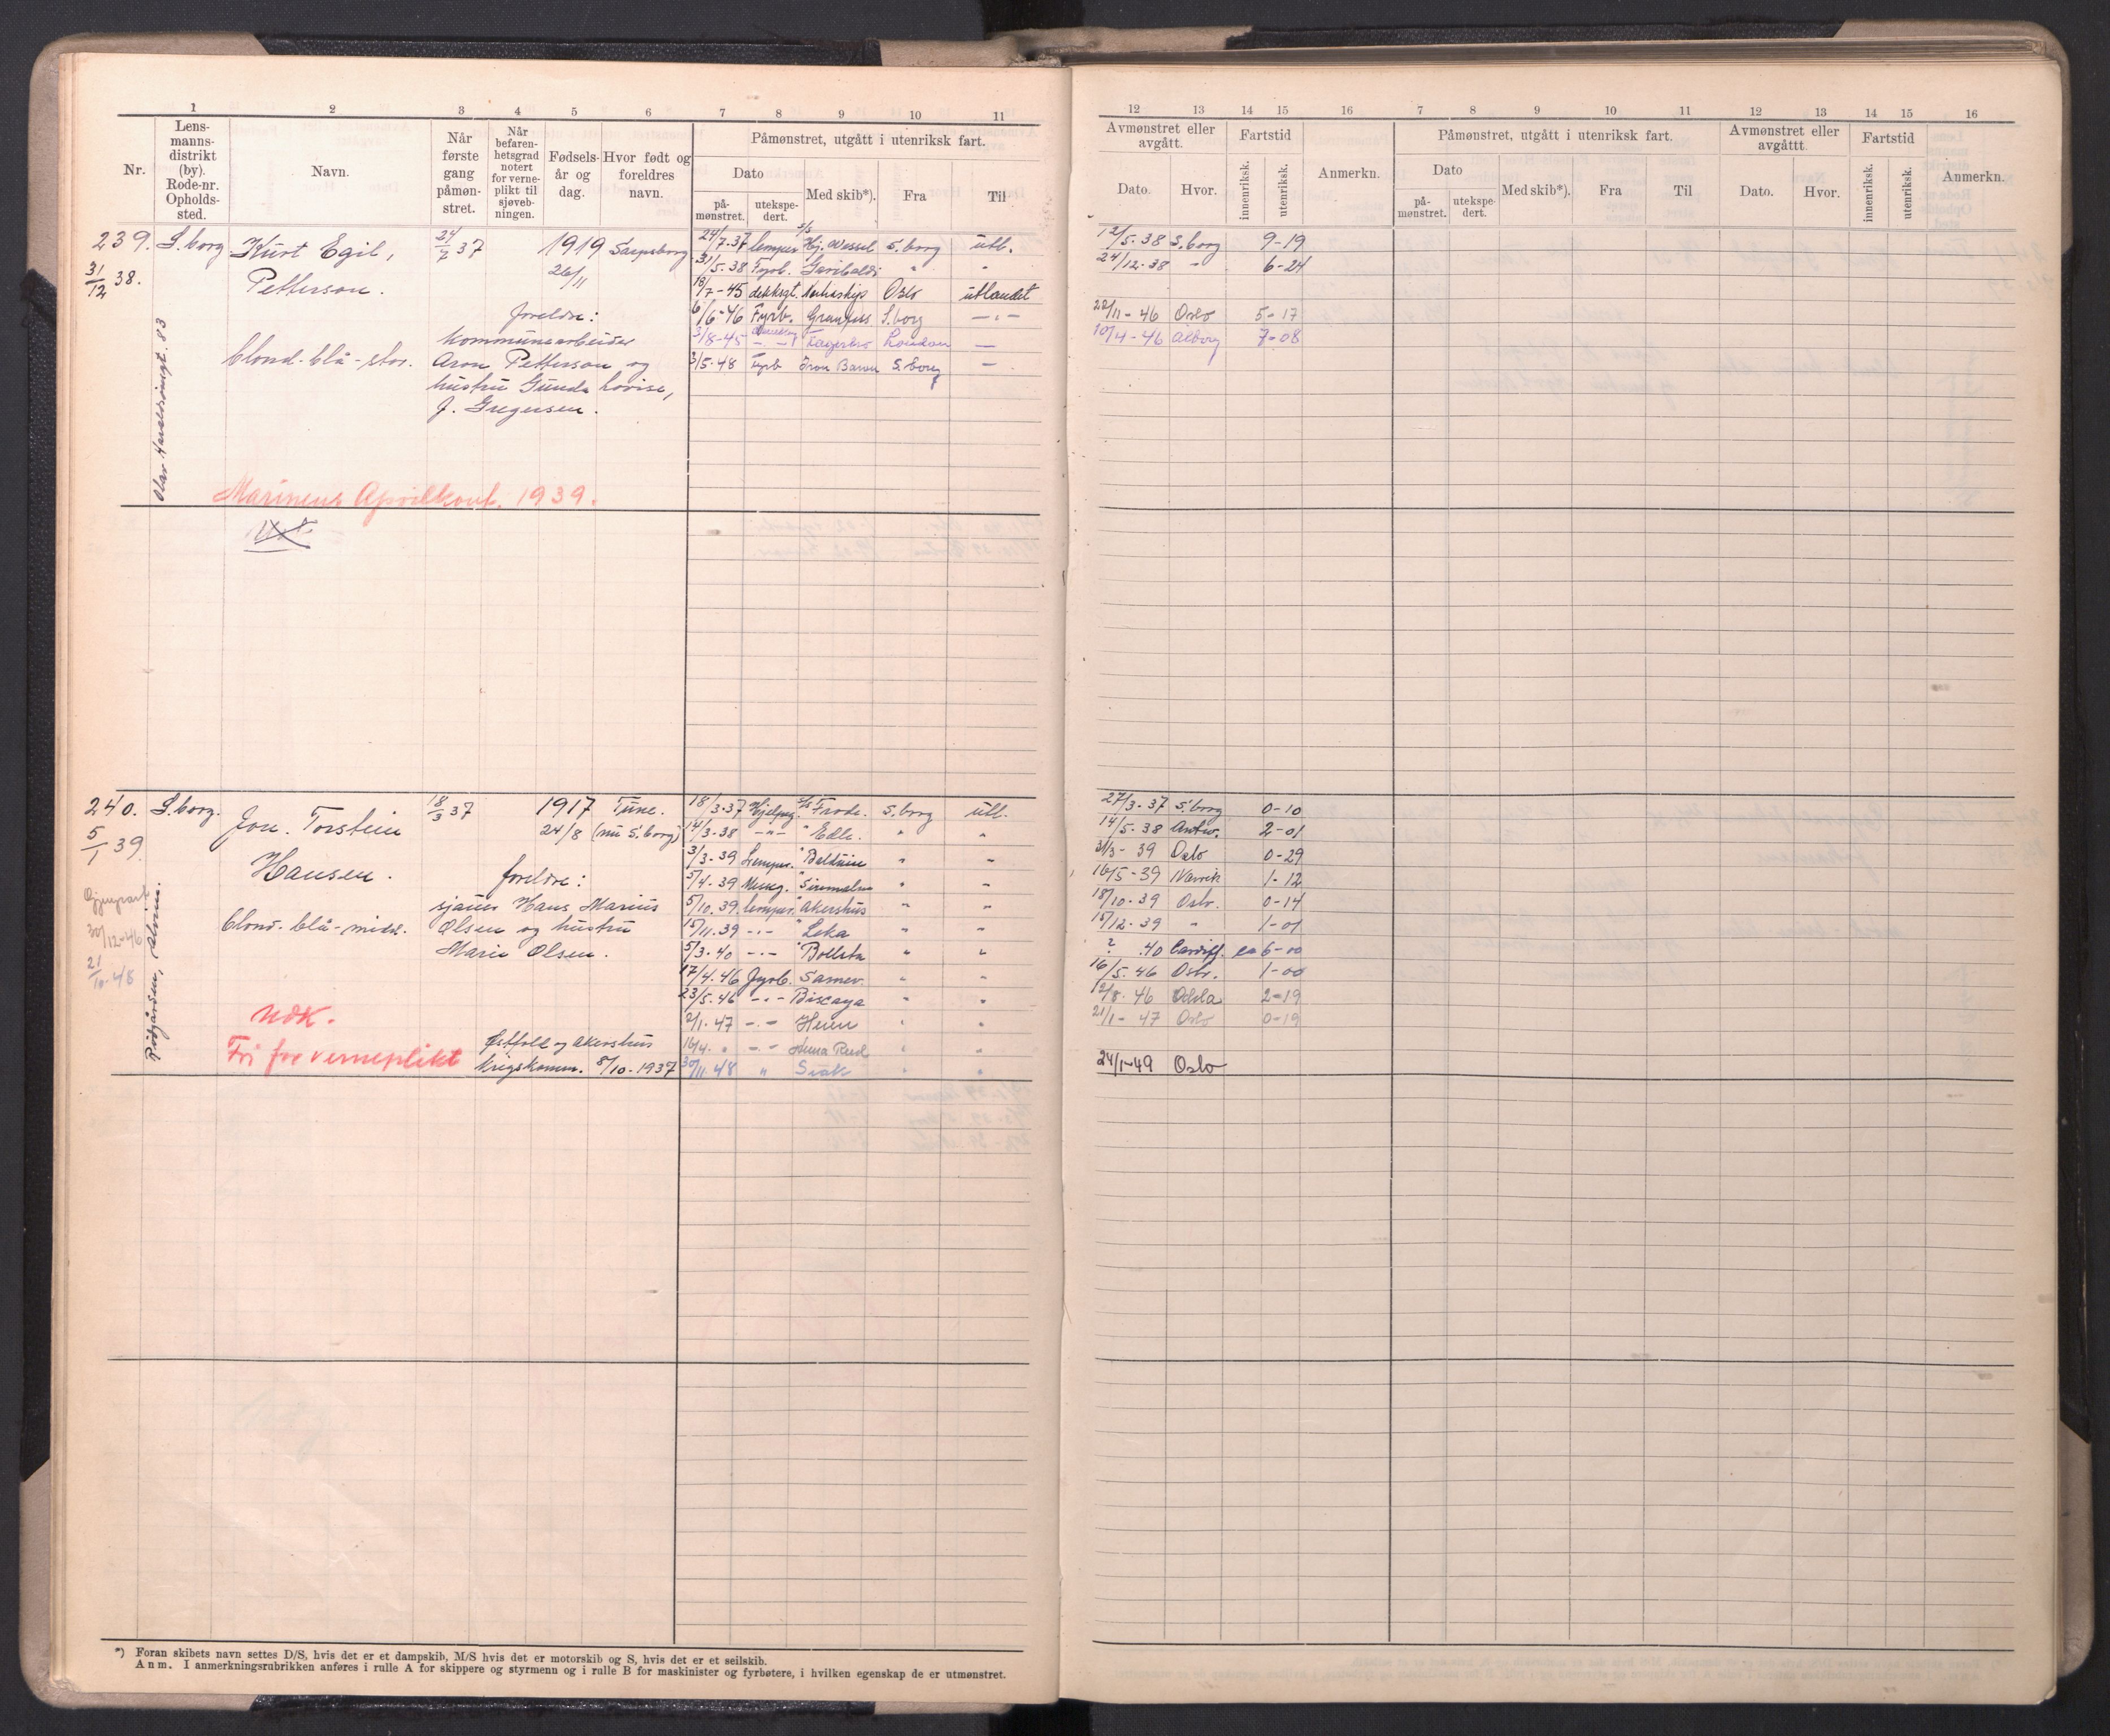 1 2 3 4 5 6 7 8 9 10 11
Nr.
Lens-
manns-
distrikt
(by).
Rode-nr.
Opholds-
sted.
Navn.
Når
første
gang
påmøn-
stret.
Når
befaren-
hetsgrad
notert
for verne-
plikt til
sjøveb-
ningen.
Fødsels-
år og
dag.
Hvor født og
foreldres
navn.
Påmønstret, utgått i utenriksk fart.
Dato
på-
mønstret.
utekspe-
dert.
Med skib*).
Fra
Til
239. S.borg Kurt Egil, 24/7 37 1919 Sarpsborg 24/7-37 lemper s/s Hj. Wessel S.borg utl.
31/12 38. Petterson. 26/11 31/5-38 Fyrb. Garibaldi " "
18/7-45 dekksgt. Oslo utlandet
foreldre: 6/6-46 Fyrb. S.borg -"-
kommunearbeider 3/8-45 Fagerbro London —
blond-blå-stor. Aron Petterson og 3/5-48 Fyrb Iron Baron S.borg —
hustru Gunda Lovise,
J. Gregersen.
83
Marinens 1939.
240. S.borg. Jon. Torstein 18/3 37 1917 Tune. 18/3-37 s/s Frode. S.borg utl.
5/1 39 24/8 (nu S.borg) 14/3-38 -"- " Edle. " "
Hansen. 3/3-39 Lemper. " Balduin " "
foreldre: 5/4-39 Messeg. " " "
sjauer Hans Marius 5/10.39. lemper. " Akershus " "
30/12-46 blond-blå-midd. Olsen og hustru 15/11.39 -"- " Leka " "
21/10-48 Marie Olsen. 5/3-40 -"- " Bollsta " "
17/4.46 Fyrb. " "
23/5.46 -"- Biscaya " "
UDK. 2/1-47 -"- " "
Østfold og Akershus 16/4. " -"- " "
Fri for verneplikt Krigskomm. 8/10-1937 30/11-48 " " "
*) Foran skibets navn settes D/S, hvis det er et dampskib, M/S hvis det er motorskib og S, hvis det er et seilskib.
Anm. I anmerkningsrubrikken anføres i rulle A for skippere og styrmenn og i rulle B for maskinister og fyrbøtere, i hvilken egenskap de er utmønstret.
12 13 14 15 16 7 8 9 10 11 12 13 14 15 16
Avmønstret eller
avgått.
Dato.
Hvor.
Fartstid
innenriksk.
utenriksk.
Anmerkn.
Påmønstret, utgått i utenriksk fart.
Dato
på-
mønstret.
utekspe-
dert.
Med skib*).
Fra
Til
Avmønstret eller
avgåttt.
Dato.
Hvor.
Fartstid
innenriksk.
utenriksk.
Anmerkn.
12/5-38 S.borg 9-19
24/12-38 " 6-24
22/11-46 Oslo 5-17
10/4-46 Ålborg 7-08
27/3-37 S.borg 0-10
14/5-38 Antw. 2-01
31/3-39 Oslo 0-29
16/5-39 Narvik 1-12
18/10-39 Oslo. 0-14
15/12-39 " 1-01
? .40 Cardiff. ca 6-00
16/5.46 Oslo. 1-00
12/8.46 Odda 2-19
21/1-47 Oslo 0-19
24/1-49 Oslo